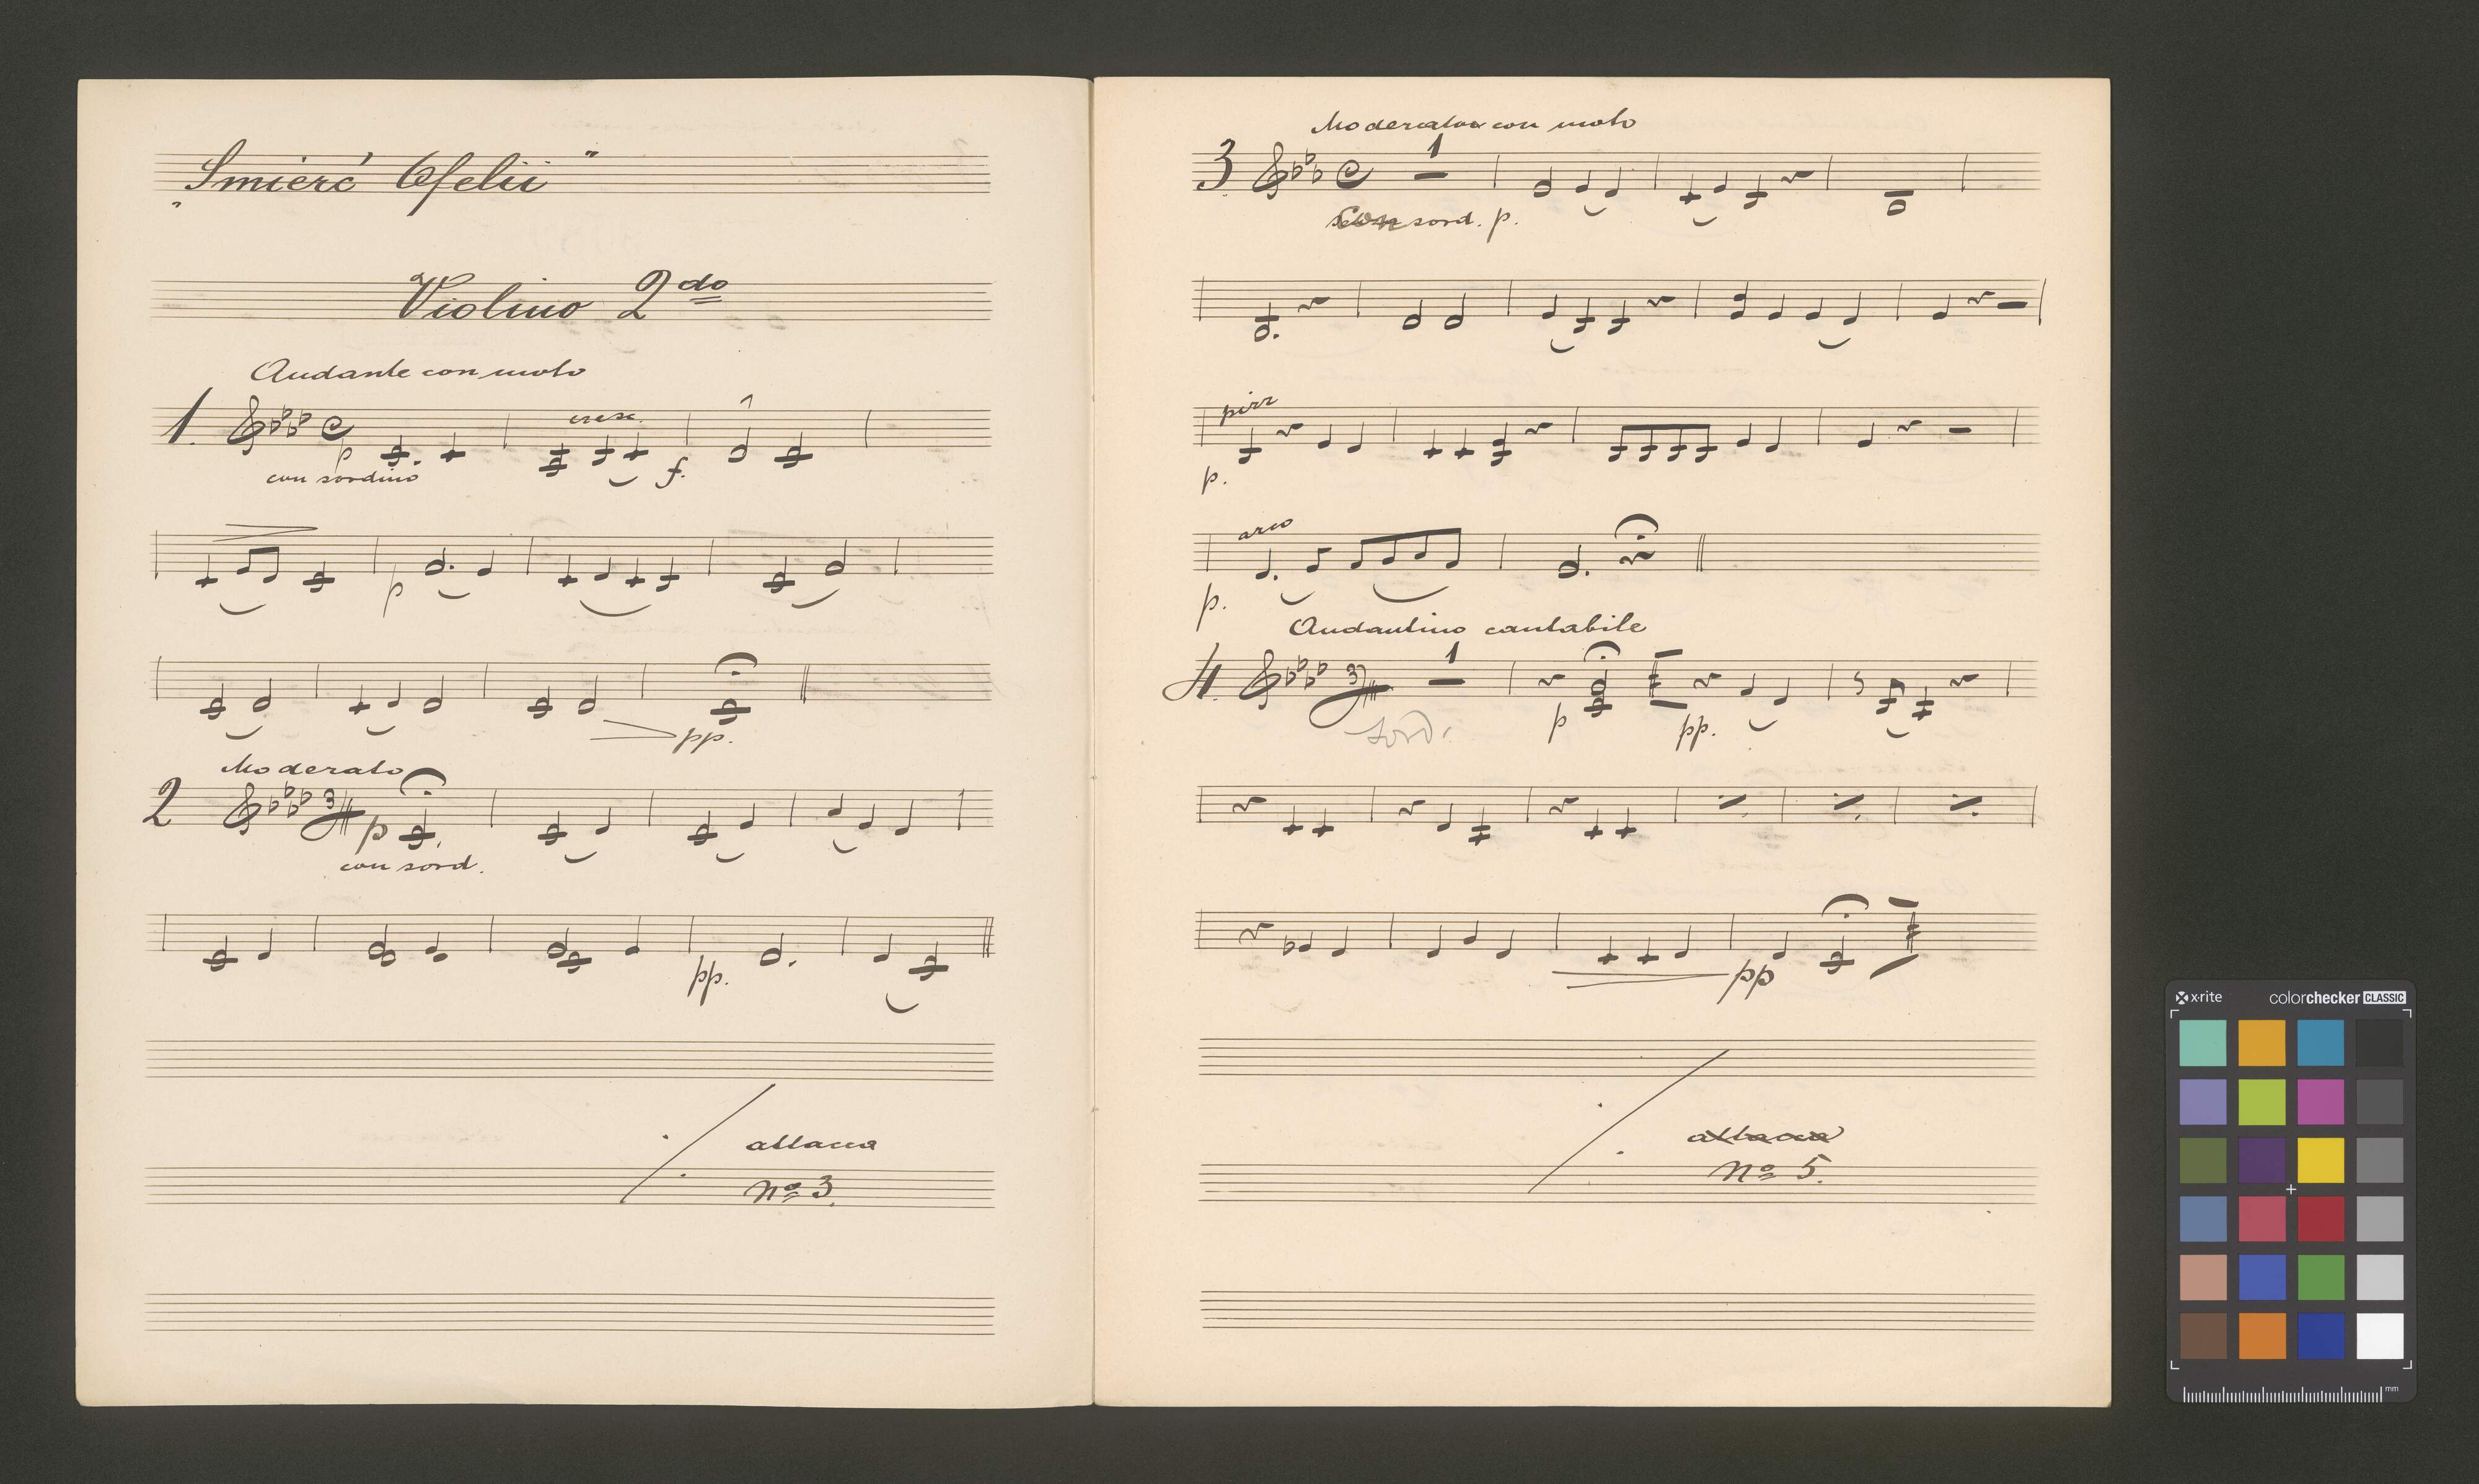 „Śmierć Ofelii"
Violino 2do
Andante con moto
1.
p
cresc.
con sordino
f.
p
pp.
Moderato
2
3/4
p
con sord.
pp.
attacca
No 3.
Moderato con moto
3
1
con sord. p.
pizz
p.
arco
p.
Andantino cantabile
4.
3/4
1
p
pp.
sord.
pp
attacca
No 5.
x-rite
colorchecker CLASSIC
mm